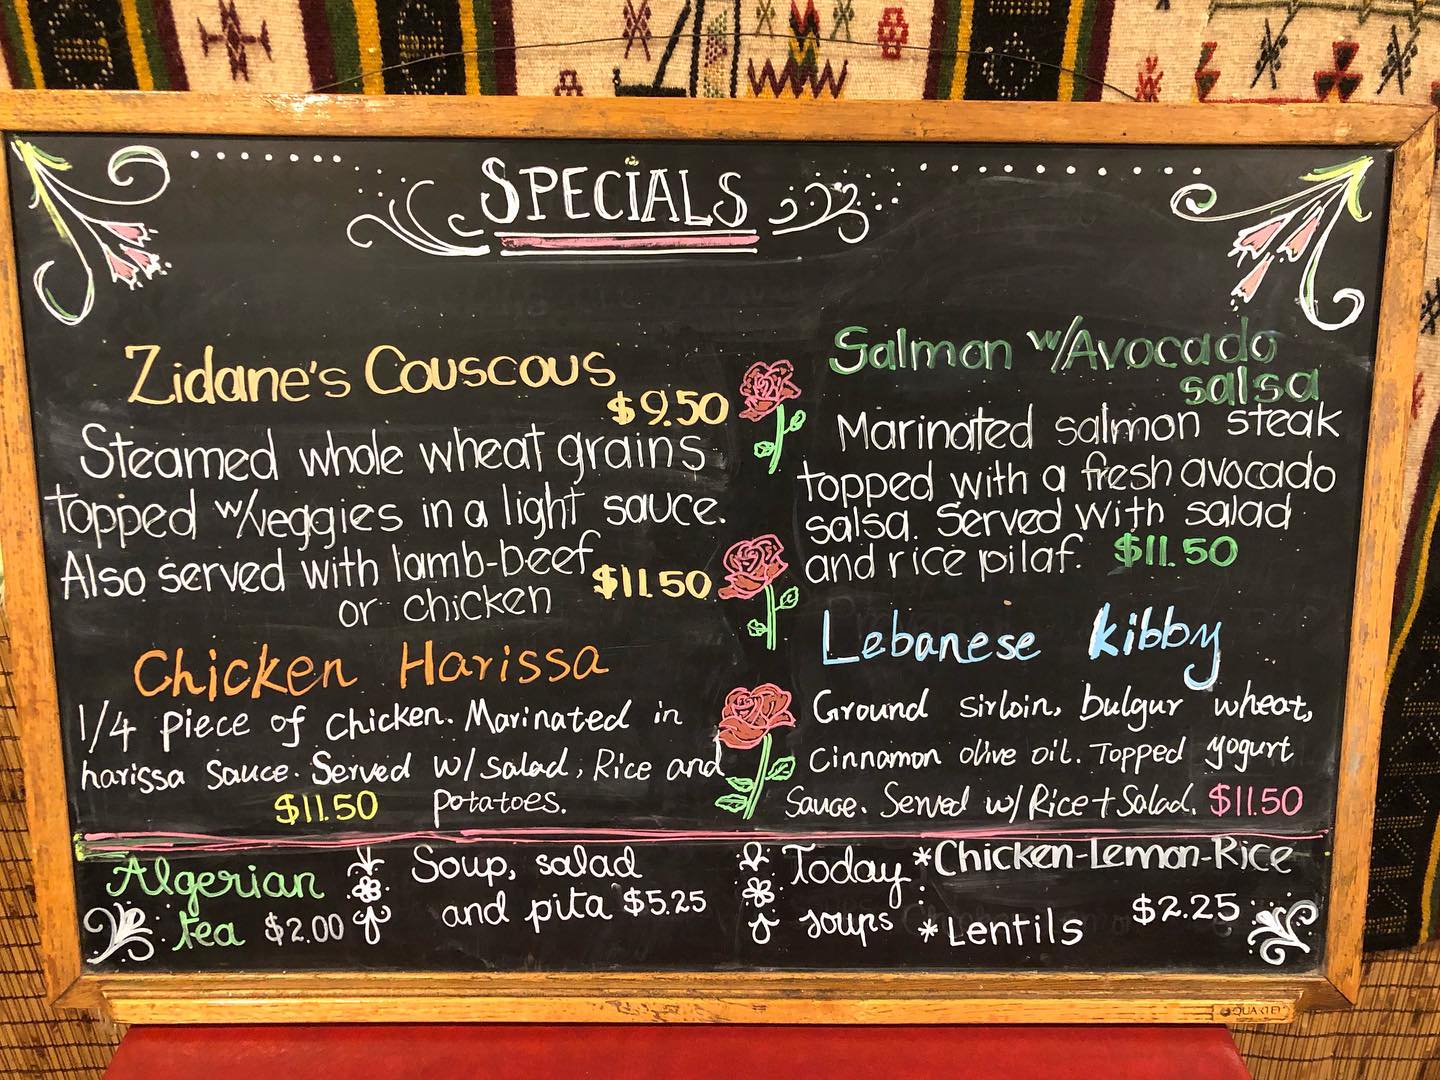 SPECIALS
Zidane's Couscous
$9.50
Steamed whole wheat grains
topped w/veggies in a light sauce.
Also served with lamb-beef
or chicken
$11.50
Chicken Harissa
1/4 piece of chicken. Marinated in
harissa sauce. Served w/salad, Rice and
$11.50 potatoes.
Salmon w/Avocado
salsa
Marinated salmon steak
topped with a fresh avocado
salsa. Served with salad
and rice pilaf. $11.50
Lebanese kibby
Ground sirloin, bulgur wheat,
Cinnamon olive oil. Topped yogurt
Sauce. Served w/Rice+Salad. $11.50
Algerian
tea $2.00
Soup, salad
and pita $5.25
Today :
soups
*Chicken-Lemon-Rice
$2.25
*Lentils
QUARTET